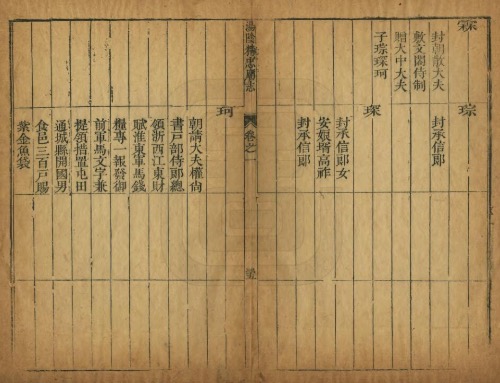 霖
封朝散大夫
敷文閣侍制
贈大中大夫
子琮琛珂
琮
封承信郎
琛
封承信郎女
安娘壻高祚
封承信郎
湯陰精忠廟志
卷之一
珂
朝請大夫權尚
書戶部侍郎總
領浙西江東財
賦淮東軍馬錢
糧專一報發御
前軍馬文字兼
提領措置屯田
通城縣開國男
食邑三百戸賜
紫金魚袋